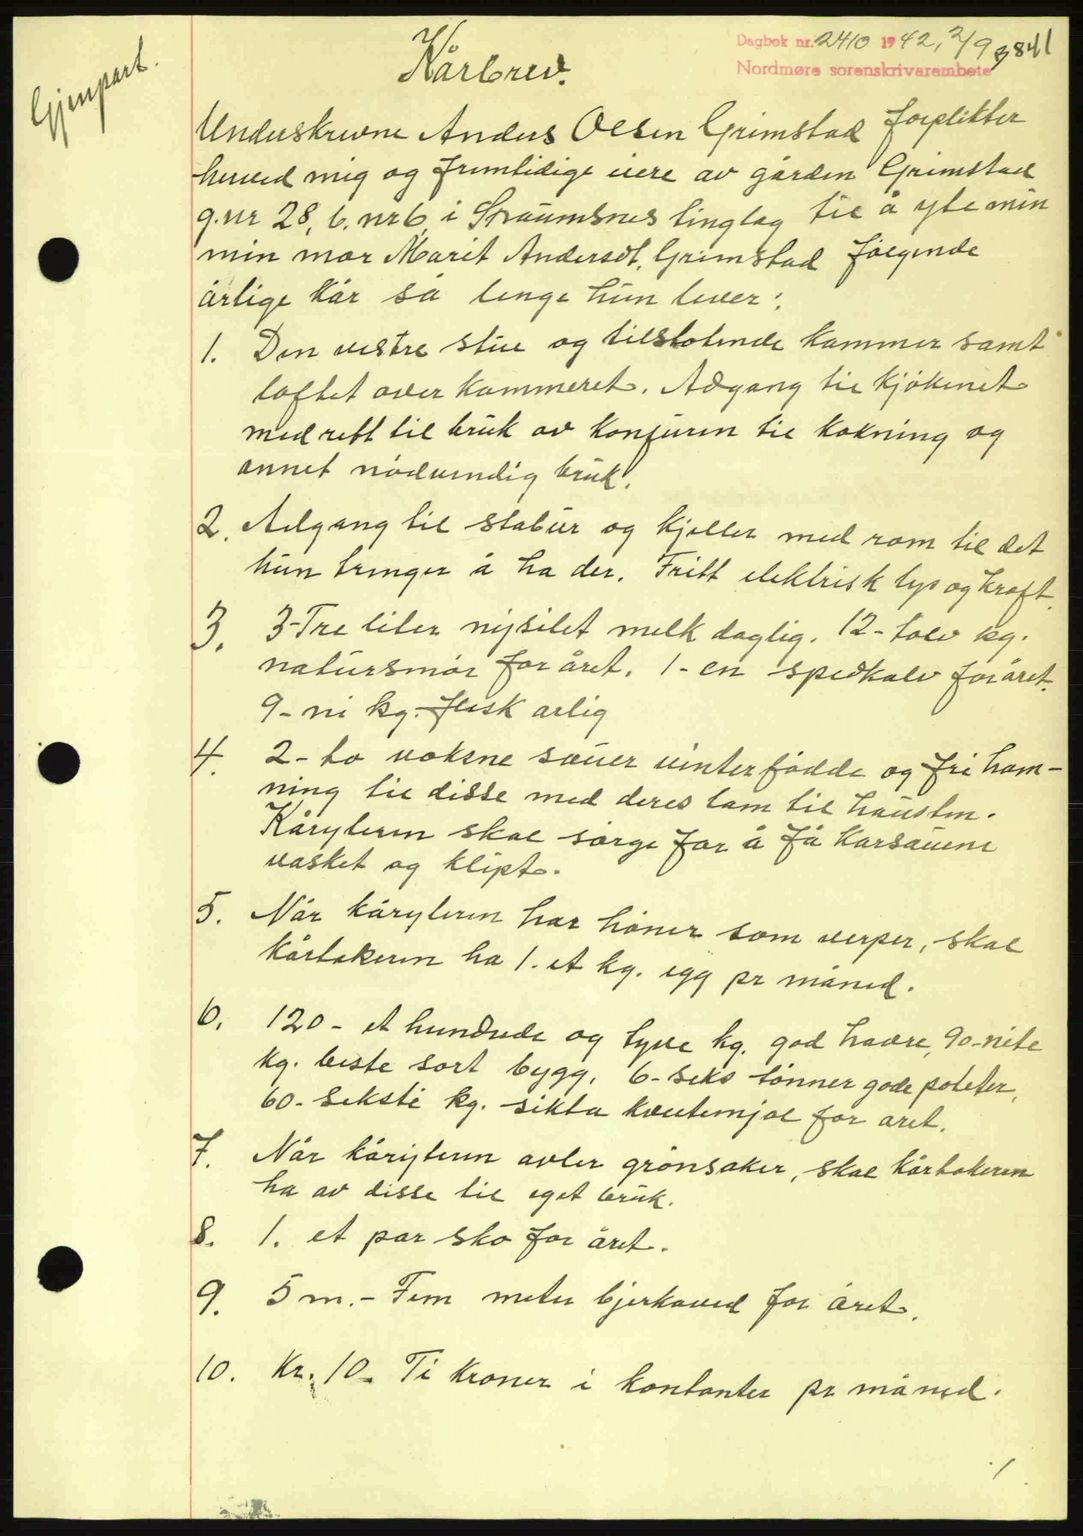 Gjenpart.
Kårbrev.
Dagbok nr. 2410 1942, 2/9 3841
Nordmøre sorenskrivarembete
Underskrevne Anders Olsen Grimstad forplikter
herved mig og fremtidige eiere av gården Grimstad
g.nr 28, b.nr 6, i Straumsnes tinglag til å yte min
min mor Marit Andersdt. Grimstad følgende
årlige kår så lenge hun lever:
1. Den vestre stue og tilstøtende kammer samt
loftet over kammeret. Adgang til kjøkenet
med rett til bruk av komfuren til kokning og
annet nødvendig bruk.
2. Adgang til stabur og kjeller med rom til det
hun trenger å ha der. Fritt elektrisk lys og kraft.
3. 3-Tre liter nysilet melk daglig. 12-tolv kg.
natursmør for året. 1-en spedkalv for året.
9-ni kg. flesk årlig
4. 2-to voksne sauer vinterfødde og fri ham-
ning til disse med deres lam til hausten.
Kåryteren skal sørge for å få kårsauene
vasket og klipt.
5. Når kåryteren har høner som verper, skal
kårtakeren ha 1. et kg. egg pr måned.
6. 120- et hundrede og tyve kg. god havre, 90-niti
kg. beste sort bygg. 6-seks tønner gode poteter,
60-seksti kg. sikta kveitemjøl for året.
7. Når kåryteren avler grønsaker, skal kårtakeren
ha av disse til eget bruk.
8. 1. et par sko for året.
9. 5 m.- Fem meter bjerkaved for året.
10. Kr. 10- Ti kroner i kontanter pr måned.